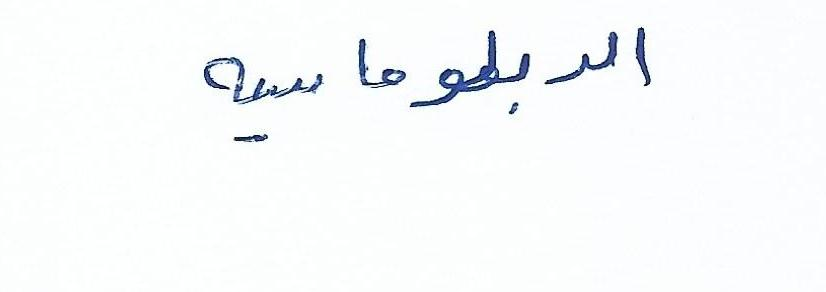 الدبلوماسيه